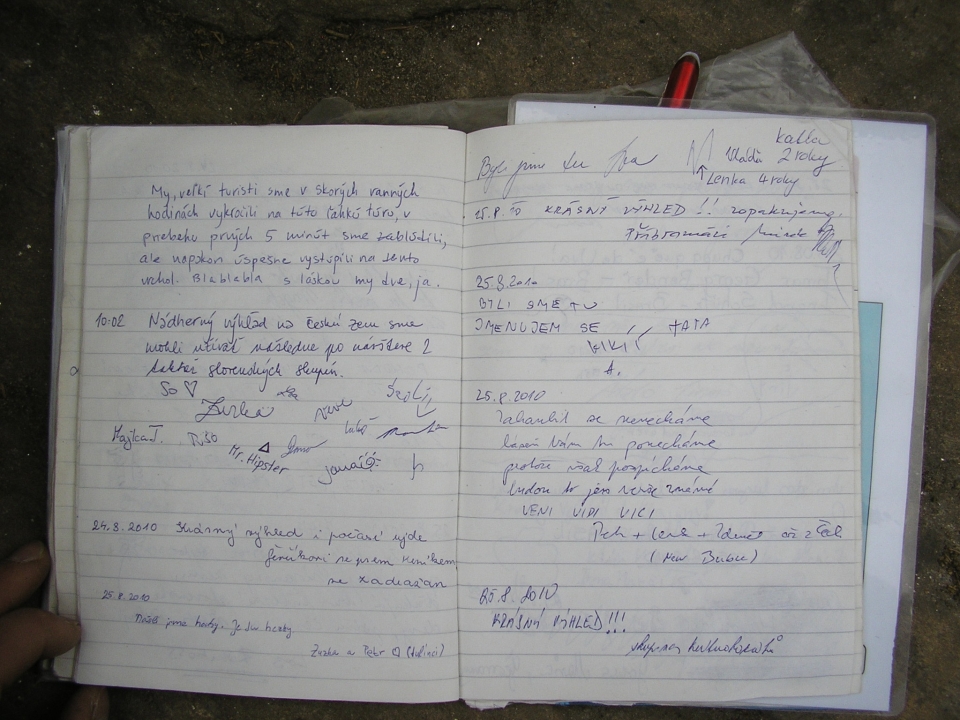 My, veľkí turisti sme v skorých ranných
hodinách vykročili na túto ľahkú túru, v
priebehu prvých 5 minút sme zablúdili,
ale napokon úspešne vystúpili na tento
vrchol. Blablabla s láskou my dve, ja.
10:02 Nádherný výhľad na českú zem sme
mohli užívať následne po návšteve 2
taktiež slovenských skupín.
So ♡
Zuzka
Majka T.
Mr. Hipster
24.8.2010 Krásný výhled i počasí ujde
se
25.8.2010
Našli jsme houby.
Zuzka a Petr
Byli jsme tu
Vláďa
2 roky
Lenka 4 roky
25.8.10 KRÁSNÝ VÝHLED !! zopakujeme.
25.8.2010
BYLI SME TU
JMENUJEM SE KIKI TATA
A.
25.8.2010
Zahanbit se nenecháme
báseň Vám tu ponecháme
protože však pospícháme
budou to jen verše známé
VENI VIDI VICI
25.8.2010
KRÁSNÝ VÝHLED!!!